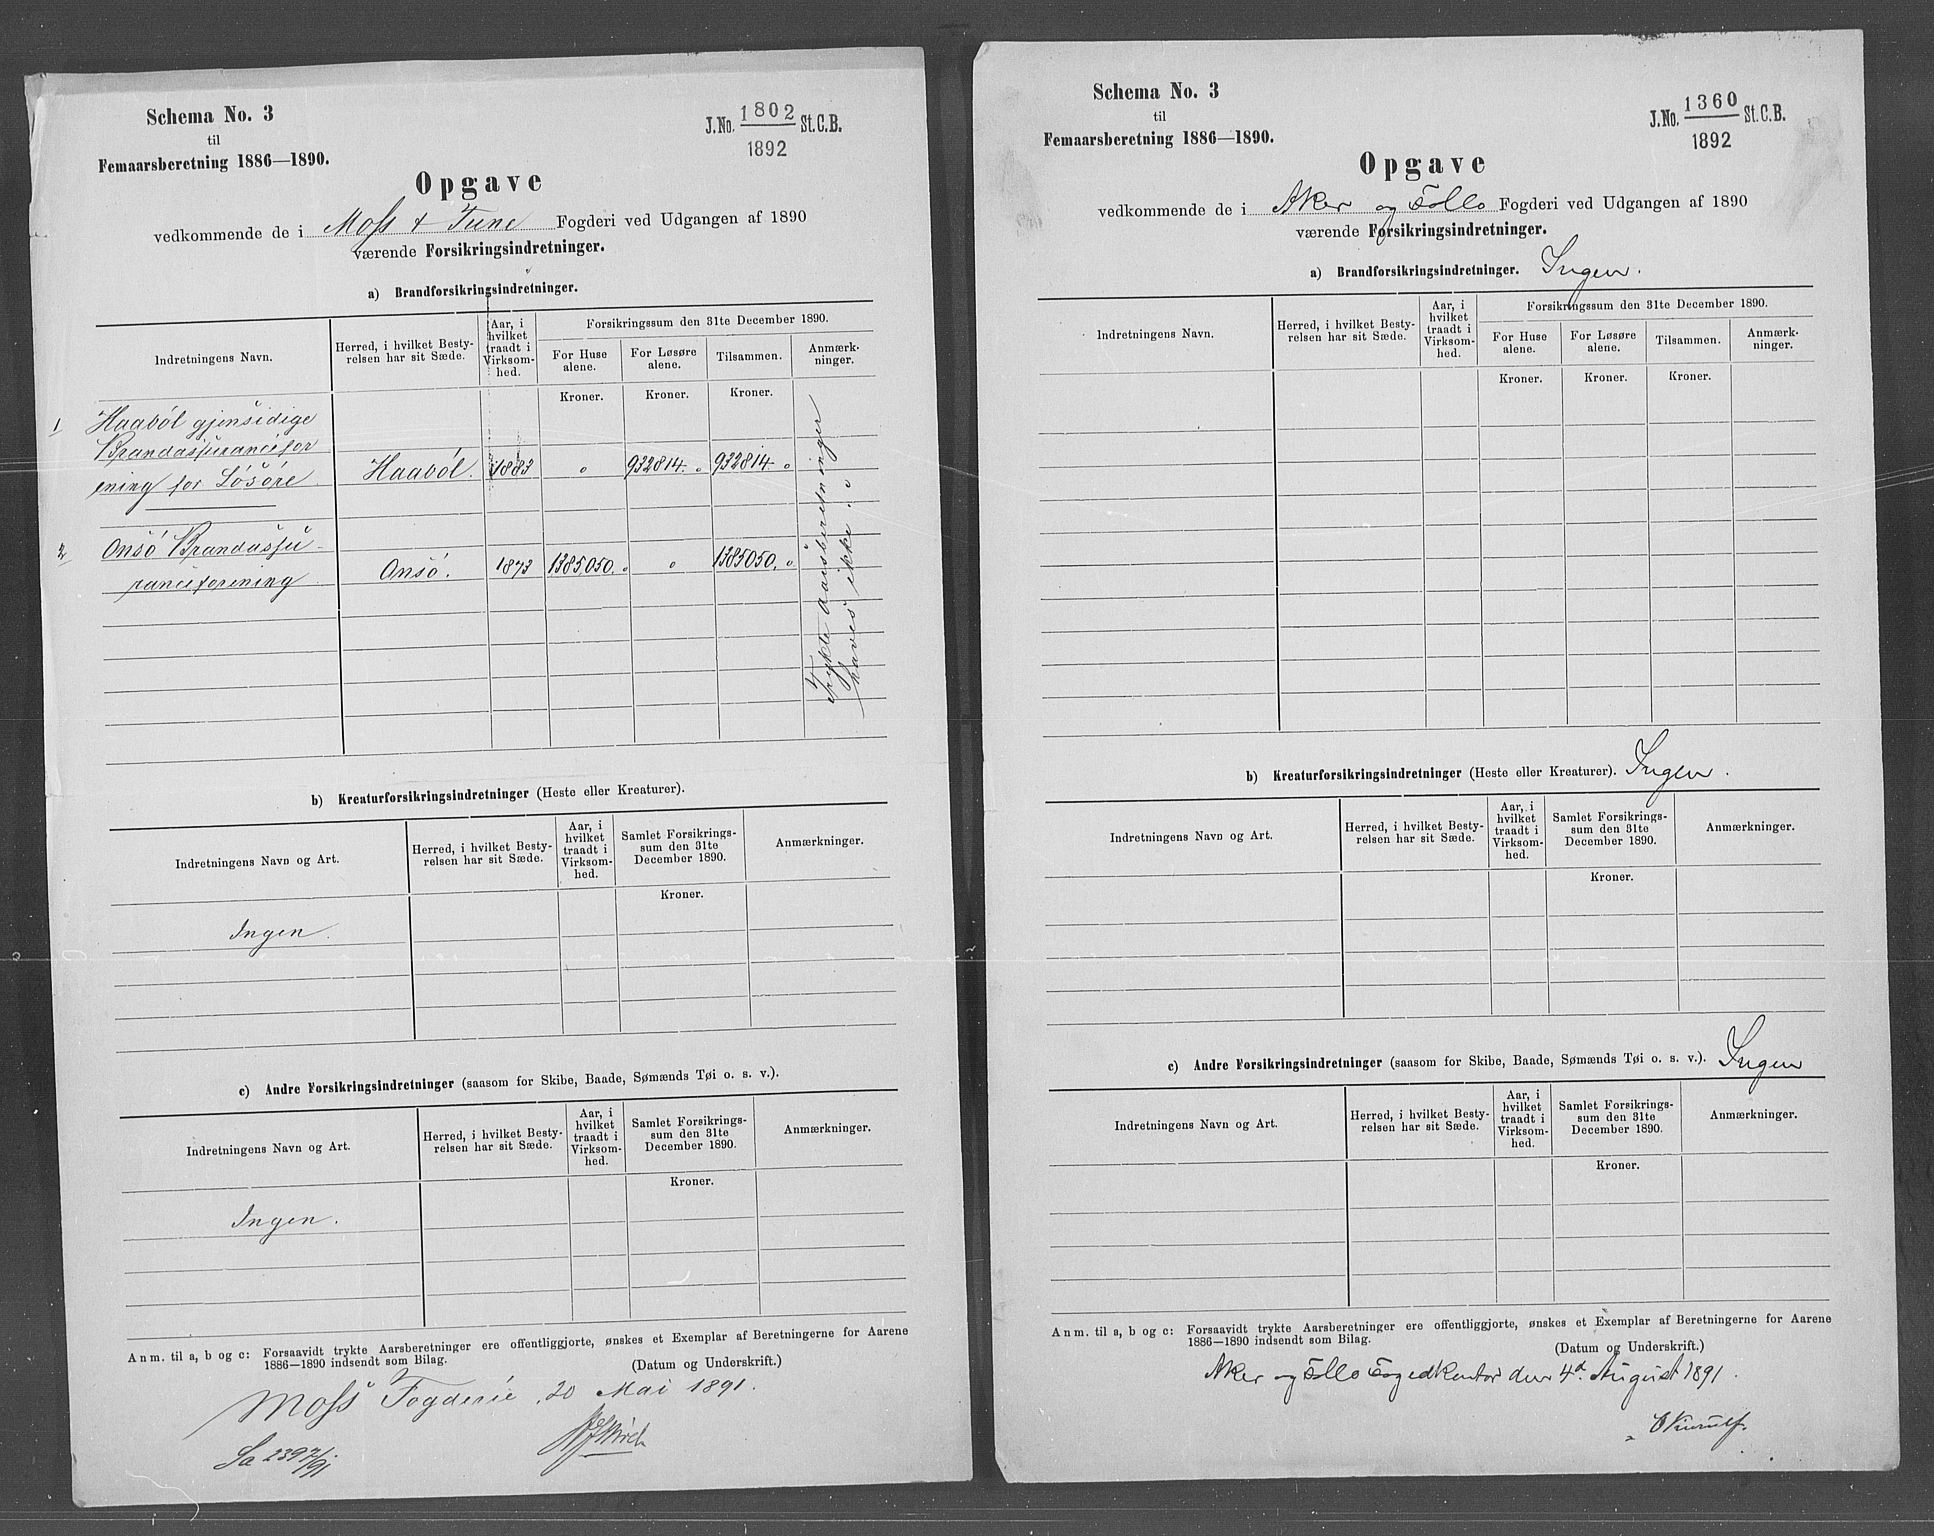 Schema No. 3
til
Femaarsberetning 1886—1890.
J.No. 1802 St.C.B.
1892
Opgave
vedkommende de i Moss & Tune Fogderi ved Udgangen af 1890
værende Forsikringsindretninger.
a) Brandforsikringsindretninger.
Indretningens Navn.
Herred, i hvilket Besty-
relsen har sit Sæde.
Aar, i
hvilket
traadt i
Virksom-
hed.
Forsikringssum den 31te December 1890.
For Huse
alene.
For Løsøre
alene.
Tilsammen.
Anmærk-
ninger.
Kroner. Kroner. Kroner.
1 Haaböl gjensidige
Brandassurancefor
ening for Lösöre Haaböl. 1883 " 932814. " 932814 "
2 Onsö Brandassu-
ranceforening Onsö. 1873 1385050. " " 1385050. "
Trykte Aarsberetninger
haves ikke.
b) Kreaturforsikringsindretninger (Heste eller Kreaturer).
Indretningens Navn og Art.
Herred, i hvilket Besty-
relsen har sit Sæde.
Aar, i
hvilket
traadt i
Virksom-
hed.
Samlet Forsikrings-
sum den 31te
December 1890.
Anmærkninger.
Kroner.
Ingen.
c) Andre Forsikringsindretninger (saasom for Skibe, Baade, Sømænds Tøi o. s. v.).
Indretningens Navn og Art.
Herred, i hvilket Besty-
relsen har sit Sæde.
Aar, i
hvilket
traadt i
Virksom-
hed.
Samlet Forsikrings-
sum den 31te
December 1890.
Anmærkninger.
Kroner.
Ingen.
Anm. til a, b og c: Forsaavidt trykte Aarsberetninger ere offentliggjorte, ønskes et Exemplar af Beretningerne for Aarene
1886—1890 indsendt som Bilag.
(Datum og Underskrift.)
Moss Fogderie, 20 Mai 1891.
Sa 2397/91
Schema No. 3
til
Femaarsberetning 1886—1890.
J.No. 1360 St.C.B.
1892
Opgave
vedkommende de i Aker og Follo Fogderi ved Udgangen af 1890
værende Forsikringsindretninger.
a) Brandforsikringsindretninger. Ingen.
Indretningens Navn.
Herred, i hvilket Besty-
relsen har sit Sæde.
Aar, i
hvilket
traadt i
Virksom-
hed.
Forsikringssum den 31te December 1890.
For Huse
alene.
For Løsøre
alene.
Tilsammen.
Anmærk-
ninger.
Kroner. Kroner. Kroner.
b) Kreaturforsikringsindretninger (Heste eller Kreaturer). Ingen.
Indretningens Navn og Art.
Herred, i hvilket Besty-
relsen har sit Sæde.
Aar, i
hvilket
traadt i
Virksom-
hed.
Samlet Forsikrings-
sum den 31te
December 1890.
Anmærkninger.
Kroner.
c) Andre Forsikringsindretninger (saasom for Skibe, Baade, Sømænds Tøi o. s. v.). Ingen
Indretningens Navn og Art.
Herred, i hvilket Besty-
relsen har sit Sæde.
Aar, i
hvilket
traadt i
Virksom-
hed.
Samlet Forsikrings-
sum den 31te
December 1890.
Anmærkninger.
Kroner.
Anm. til a, b og c: Forsaavidt trykte Aarsberetninger ere offentliggjorte, ønskes et Exemplar af Beretningerne for Aarene
1886—1890 indsendt som Bilag.
(Datum og Underskrift.)
Aker og Follo Fogedkontor den 4de August 1891.